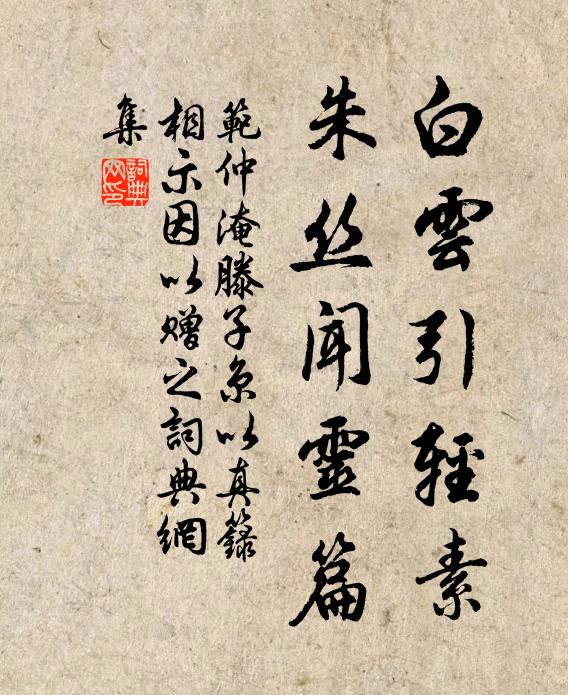 白雲引輕素
朱丝闻靈篇
範仲淹滕子京以真籙
相示因以赠之詞典網
集
詞典
网印